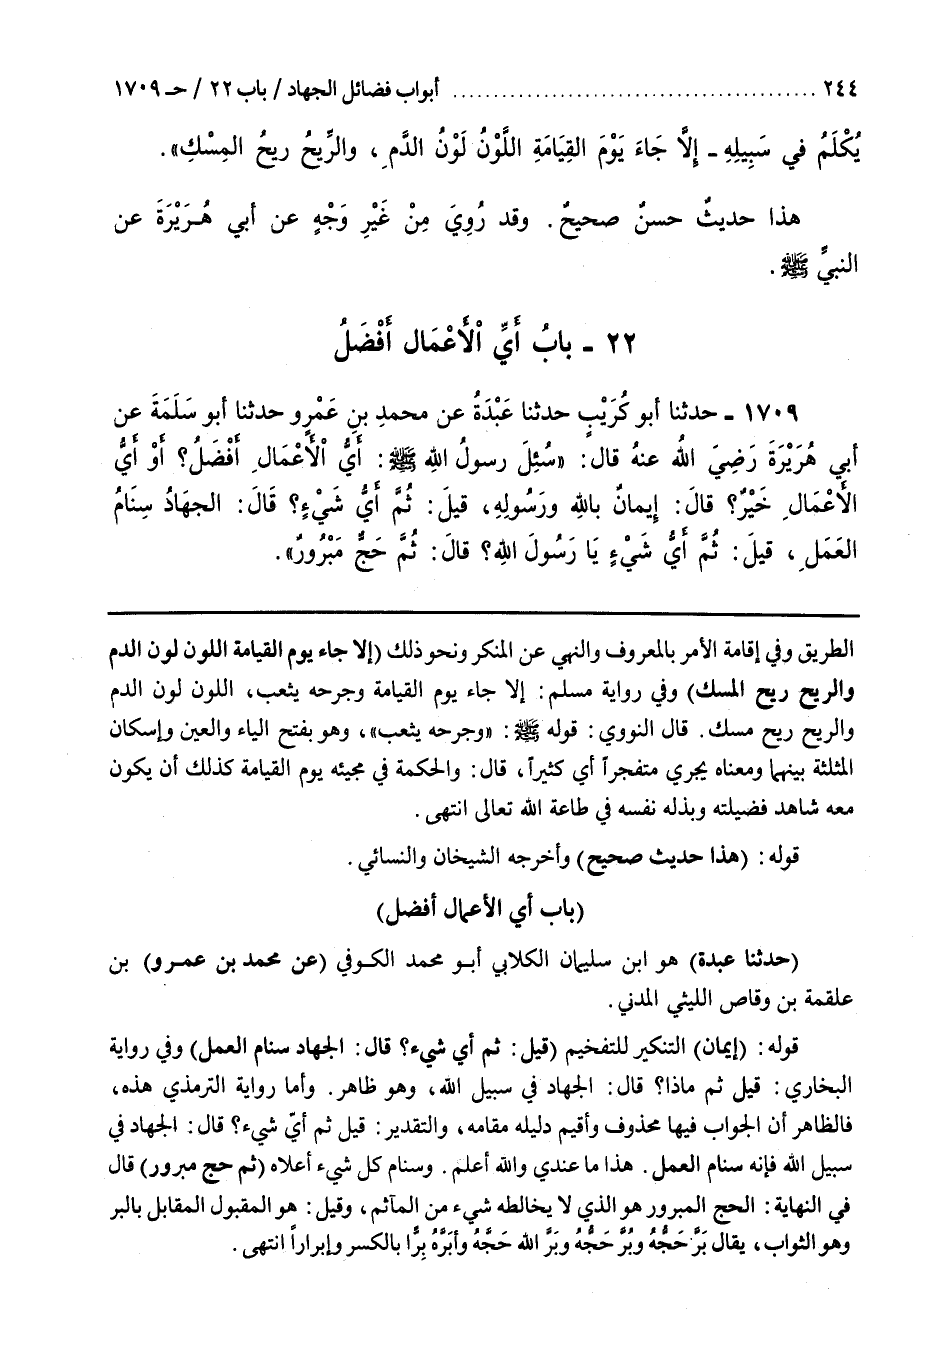 ٢٤٤ ............................................. أبواب فضائل الجهاد / باب ٢٢ / حـ ١٧٠٩
يُكْلَمُ في سَبِيلِهِ - إِلَّا جَاءَ يَوْمَ القِيَامَةِ اللَّوْنُ لَوْنُ الدَّمِ ، والرِّيحُ ريحُ المِسْكِ» .
هذا حديثٌ حسنٌ صحيحٌ . وقد رُوِيَ مِنْ غَيْرِ وَجْهٍ عن أبي هُرَيْرَةَ عن
النبيِّ ﷺ .
٢٢ - بابُ أَيِّ الْأَعْمَالِ أَفْضَلُ
١٧٠٩ - حدثنا أبو كُرَيْبٍ حدثنا عَبْدَةُ عن محمدِ بنِ عَمْرٍو حدثنا أبو سَلَمَةَ عن
أبي هُرَيْرَةَ رَضِيَ اللهُ عنهُ قال : «سُئِلَ رسولُ اللهِ ﷺ : أَيُّ الْأَعْمَالِ أَفْضَلُ؟ أَوْ أَيُّ
الأَعْمَالِ خَيْرٌ؟ قالَ : إِيمانٌ باللهِ ورَسُولِهِ، قيلَ : ثُمَّ أَيُّ شَيْءٍ؟ قَالَ : الجهَادُ سِنَامُ
العَمَلِ ، قيلَ : ثُمَّ أَيُّ شَيْءٍ يَا رَسُولَ اللهِ؟ قالَ : ثُمَّ حَجٌّ مَبْرُورٌ» .
الطريق وفي إقامة الأمر بالمعروف والنهي عن المنكر ونحو ذلك (إلا جاء يوم القيامة اللون لون الدم
والريح ريح المسك) وفي رواية مسلم : إلا جاء يوم القيامة وجرحه يثعب، اللون لون الدم
والريح ريح مسك . قال النووي : قوله ﷺ : «وجرحه يثعب» ، وهو بفتح الياء والعين وإسكان
المثلثة بينهما ومعناه يجري متفجراً أي كثيراً ، قال : والحكمة في مجيئه يوم القيامة كذلك أن يكون
معه شاهد فضيلته وبذله نفسه في طاعة الله تعالى انتهى .
قوله : (هذا حديث صحيح) وأخرجه الشيخان والنسائي .
(باب أي الأعمال أفضل)
(حدثنا عبدة) هو ابن سليمان الكلابي أبو محمد الكوفي (عن محمد بن عمرو) بن
علقمة بن وقاص الليثي المدني .
قوله : (إيمان) التنكير للتفخيم (قيل : ثم أي شيء؟ قال : الجهاد سنام العمل) وفي رواية
البخاري : قيل ثم ماذا؟ قال : الجهاد في سبيل الله، وهو ظاهر . وأما رواية الترمذي هذه،
فالظاهر أن الجواب فيها محذوف وأقيم دليله مقامه، والتقدير : قيل ثم أيّ شيء؟ قال : الجهاد في
سبيل الله فإنه سنام العمل . هذا ما عندي والله أعلم . وسنام كل شيء أعلاه (ثم حج مبرور) قال
في النهاية : الحج المبرور هو الذي لا يخالطه شيء من المآثم، وقيل : هو المقبول المقابل بالبر
وهو الثواب، يقال بَرَّ حَجُّهُ وبُرَّ حَجُّهُ وبَرَّ الله حَجَّهُ وأبَرَّهُ بِرًّا بالكسر وإبراراً انتهى .